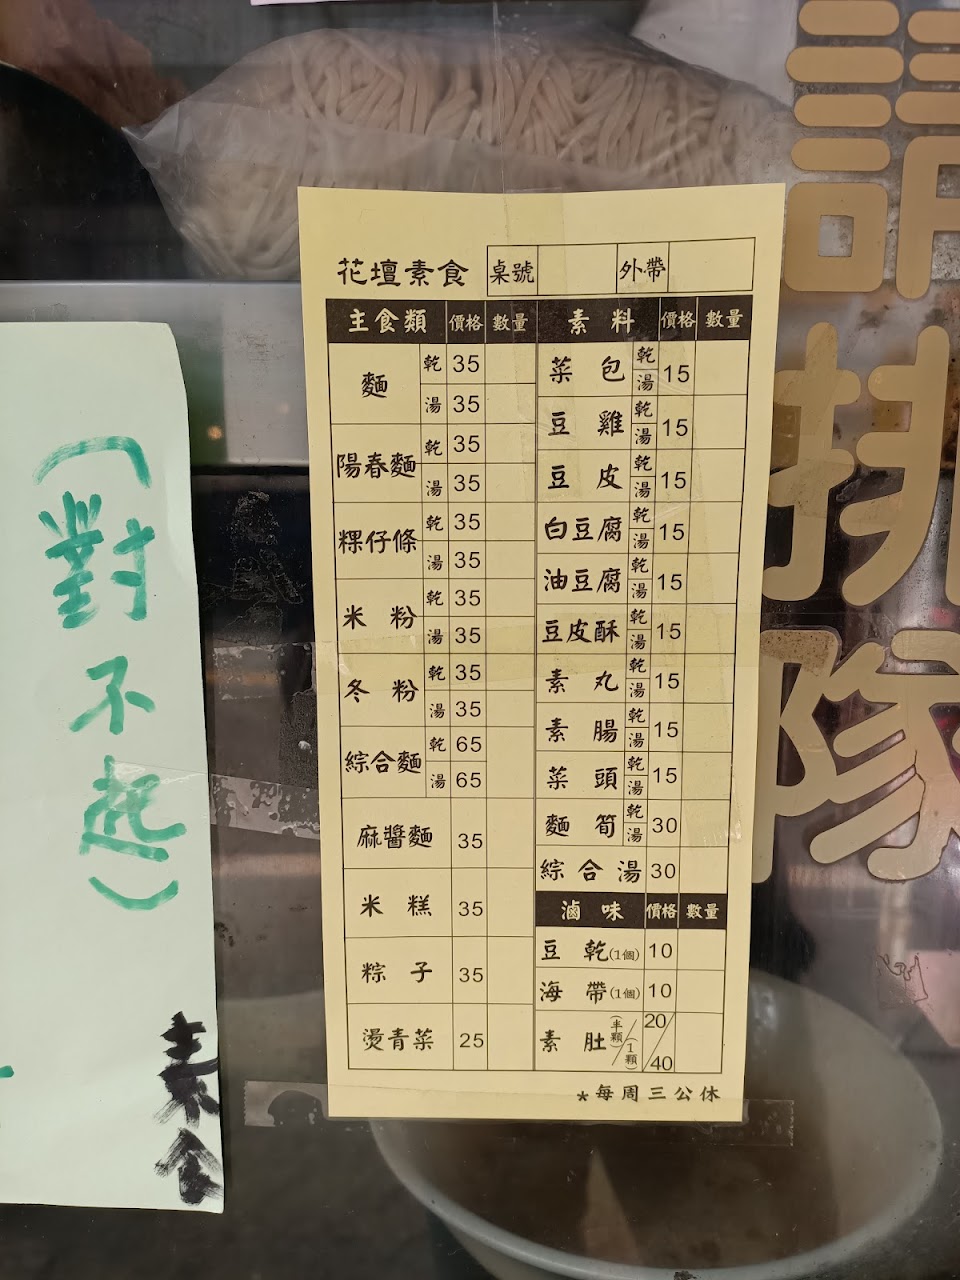 花壇素食 桌號 外帶
主食類 價格 數量
麵 乾 35
湯 35
陽春麵 乾 35
湯 35
粿仔條 乾 35
湯 35
米粉 乾 35
湯 35
冬粉 乾 35
湯 35
綜合麵 乾 65
湯 65
麻醬麵 35
米糕 35
粽子 35
燙青菜 25
素料 價格 數量
菜包 乾 湯 15
豆雞 乾 湯 15
豆皮 乾 湯 15
白豆腐 乾 湯 15
油豆腐 乾 湯 15
豆皮酥 乾 湯 15
素丸 乾 湯 15
素腸 乾 湯 15
菜頭 乾 湯 15
麵筍 乾 湯 30
綜合湯 30
滷味 價格 數量
豆乾(1個) 10
海帶(1個) 10
素肚(半顆)/(1顆) 20/40
*每周三公休
(對不起)
素食
排隊